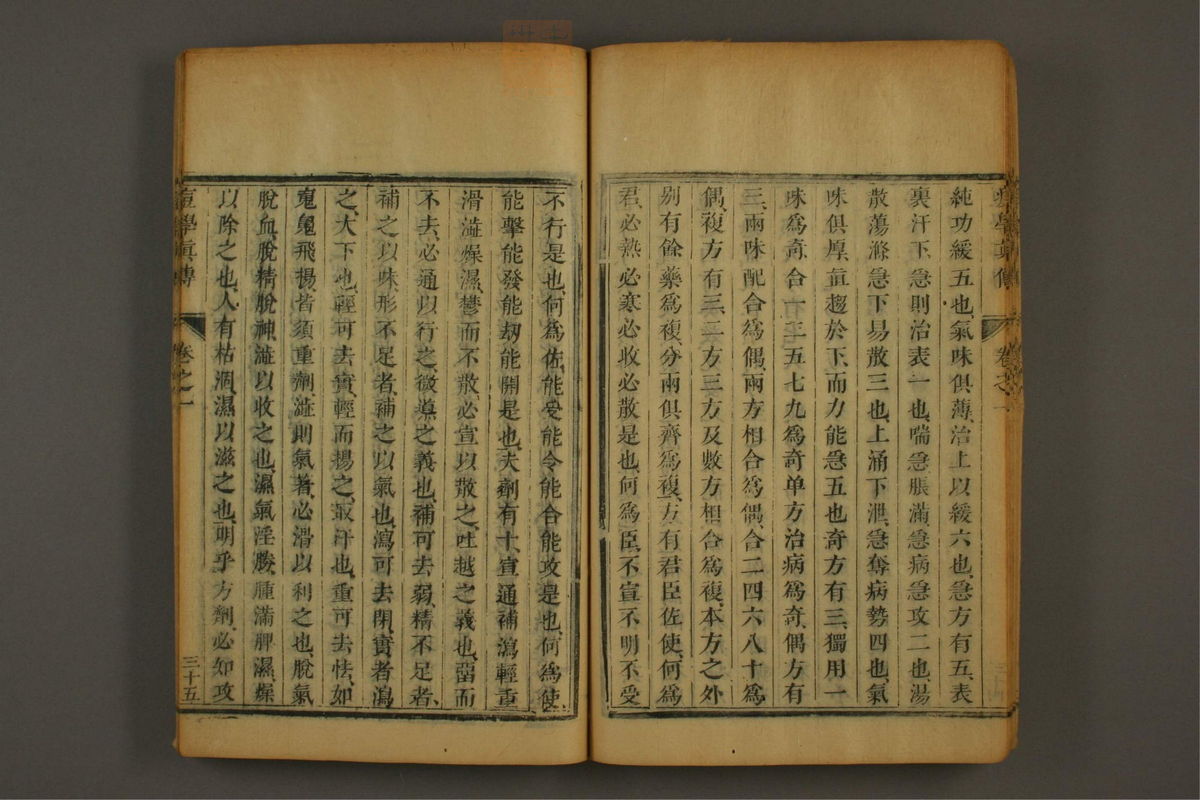 純功緩五也氣味俱薄治上以緩六也急方有五表
裏汗下急則治表一也喘急脹滿急病急攻二也湯
散蕩滌急下易散三也上涌下泄急奪病勢四也氣
味俱厚直趨於下而力能急五也奇方有三獨用一
味爲奇合一三五七九爲奇单方治病爲奇偶方有
三兩味配合爲偶兩方相合爲偶合二四六八十爲
偶複方有三二方三方及數方相合爲複本方之外
别有餘藥爲複分兩俱齊爲複方有君臣佐使何爲
君必熱必寒必收必散是也何爲臣不宣不明不受
不行是也何爲佐能受能令能合能攻是也何爲使
能擊能發能劫能開是也夫劑有十宣通補瀉輕重
滑澁燥濕鬱而不散必宣以散之吐越之義也畱而
不去必通以行之微導之義也補可去弱精不足者
補之以味形不足者補之以氣也瀉可去閉實者瀉
之大下也輕可去實輕而揚之取汗也重可去怯如
鬼魘飛揚皆須重劑澁則氣著必滑以利之也脫氣
脫血脫精脫神澁以收之也濕氣淫勝腫滿脾濕燥
以除之也人有枯涸濕以滋之也明乎方劑必知攻
痘學眞傳 卷之一 三十五